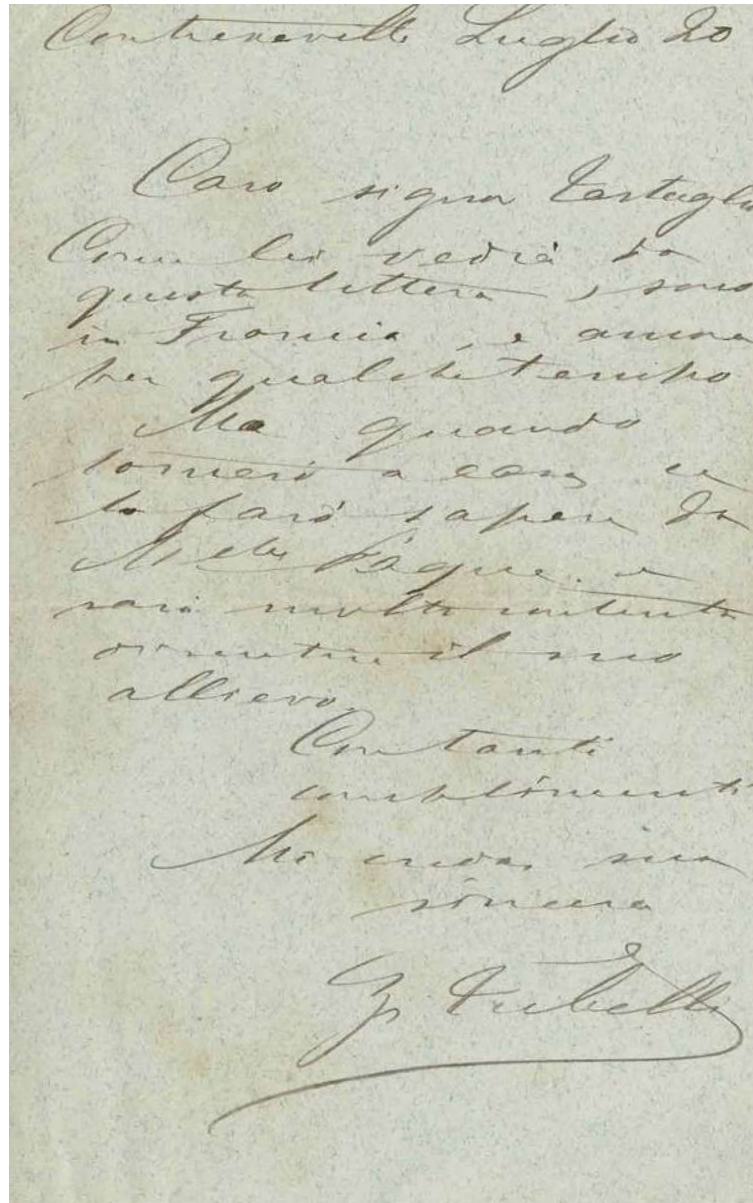 Contrexeville Luglio 20
Caro signor Tartaglia
Come lei vedrà da
questa lettera, sono
in Francia, e ancora
per qualche tempo
Ma quando
tornerò a casa
lo farò sapere da
e
sarò molto contenta
di sentire il suo
allievo.
Con tanti
complimenti
Mi creda, sua
sincera
Z. Trebelli